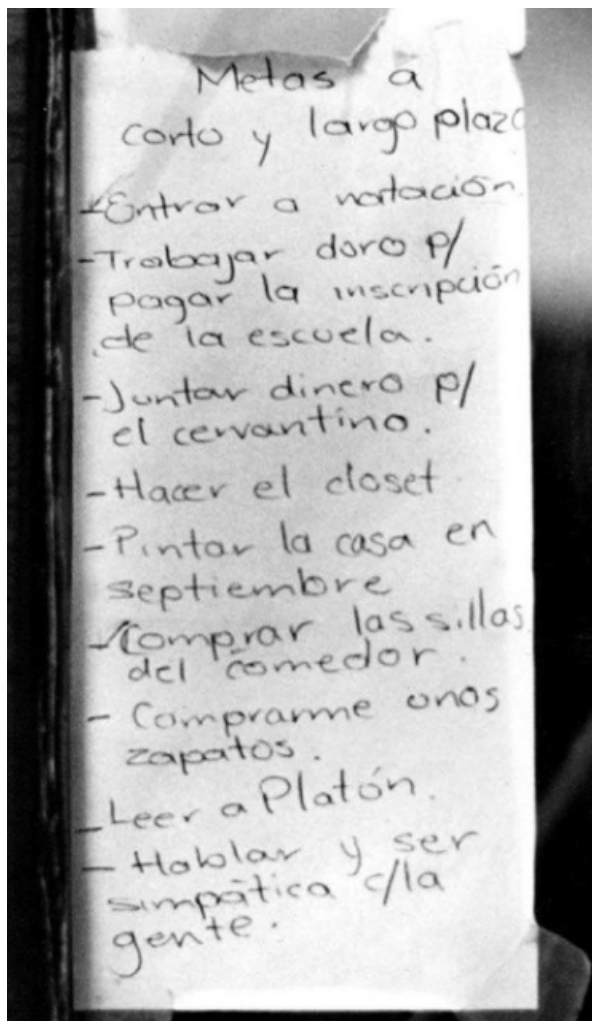 Metas a
corto y largo plazo
-Entrar a natación.
-Trabajar duro p/
pagar la inscripción
de la escuela.
-Juntar dinero p/
el cervantino.
-Hacer el closet.
-Pintar la casa en
septiembre
-Comprar las sillas
del comedor.
- Comprarme unos
zapatos.
-Leer a Platón.
- Hablar y ser
simpática c/la
gente.